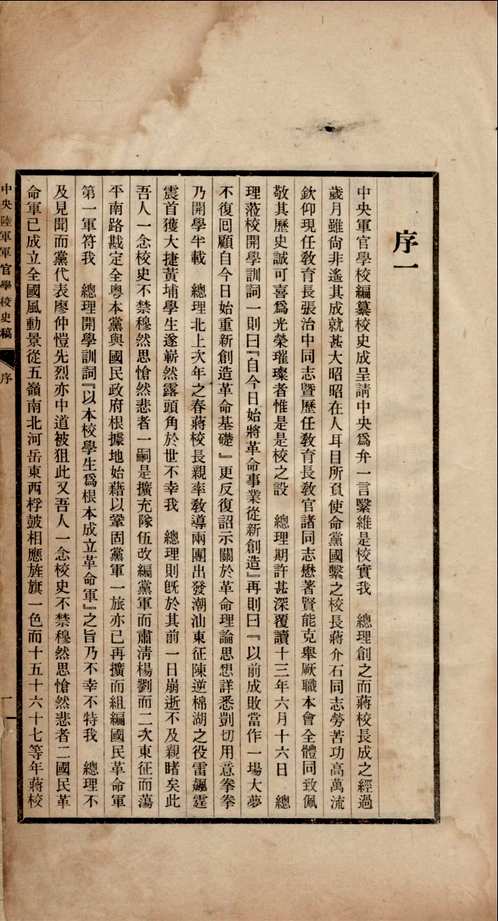 序一
中央軍官學校編纂校史成呈請中央爲弁一言繫維是校實我　總理創之而蔣校長成之經過
歲月雖尙非遙其成就甚大昭昭在人耳目所負使命黨國繫之校長蔣介石同志勞苦功高萬流
欽仰現任敎育長張治中同志暨歷任敎育長敎官諸同志懋著賢能克舉厥職本會全體同致佩
敬其歷史誠可喜爲光榮璀璨者惟是是校之設　總理期許甚深覆讀十三年六月十六日　總
理蒞校開學訓詞一則曰『自今日始將革命事業從新創造』再則曰『以前成敗當作一場大夢
不復回顧自今日始重新創造革命基礎』更反復詔示關於革命理論思想詳悉剴切用意拳拳
乃開學半載　總理北上次年之春蔣校長親率敎導兩團出發潮汕東征陳逆棉湖之役雷颿霆
震首獲大捷黃埔學生遂嶄然露頭角於世不幸我　總理則旣於其前一日崩逝不及親睹矣此
吾人一念校史不禁穆然思愴然悲者一嗣是擴充隊伍改編黨軍而肅淸楊劉而二次東征而蕩
平南路戡定全粤本黨與國民政府根據地始藉以鞏固黨軍一旅亦已再擴而組編國民革命軍
第一軍符我　總理開學訓詞『以本校學生爲根本成立革命軍』之旨乃不幸不特我　總理不
及見聞而黨代表廖仲愷先烈亦中道被狙此又吾人一念校史不禁穆然思愴然悲者二國民革
命軍已成立全國風動景從五嶺南北河岳東西桴皷相應旌旗一色而十五十六十七等年蔣校
中央陸軍軍官學校史稿
序
一